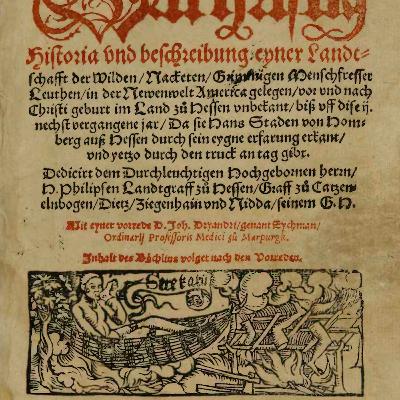 Warhaftig
Historia vnd beschreibung eyner Landt-
schafft der Wilden/Nacketen/Grimmigen Menschfresser
Leuthen/in der Newenwelt America gelegen/vor vnd nach
Christi geburt im Land zů Hessen vnbekant/biß vff dise ij.
nechst vergangene jar/Da sie Hans Staden von Hom-
berg auß Hessen durch sein eygne erfarung erkant/
vnd yetzo durch den truck an tag gibt.
Dedicirt dem Durchleuchtigen Hochgebornen herrn/
H. Philipsen Landtgraff zů Hessen/Graff zů Catzen-
elnbogen/Dietz/Ziegenhain vnd Nidda/seinem G. H.
Mit eyner vorrede D. Joh. Dryandri/genant Eychman/
Ordinarij Professoris Medici zů Marpurgk.
Inhalt des Büchlins volget nach den Vorreden.
Setekatu